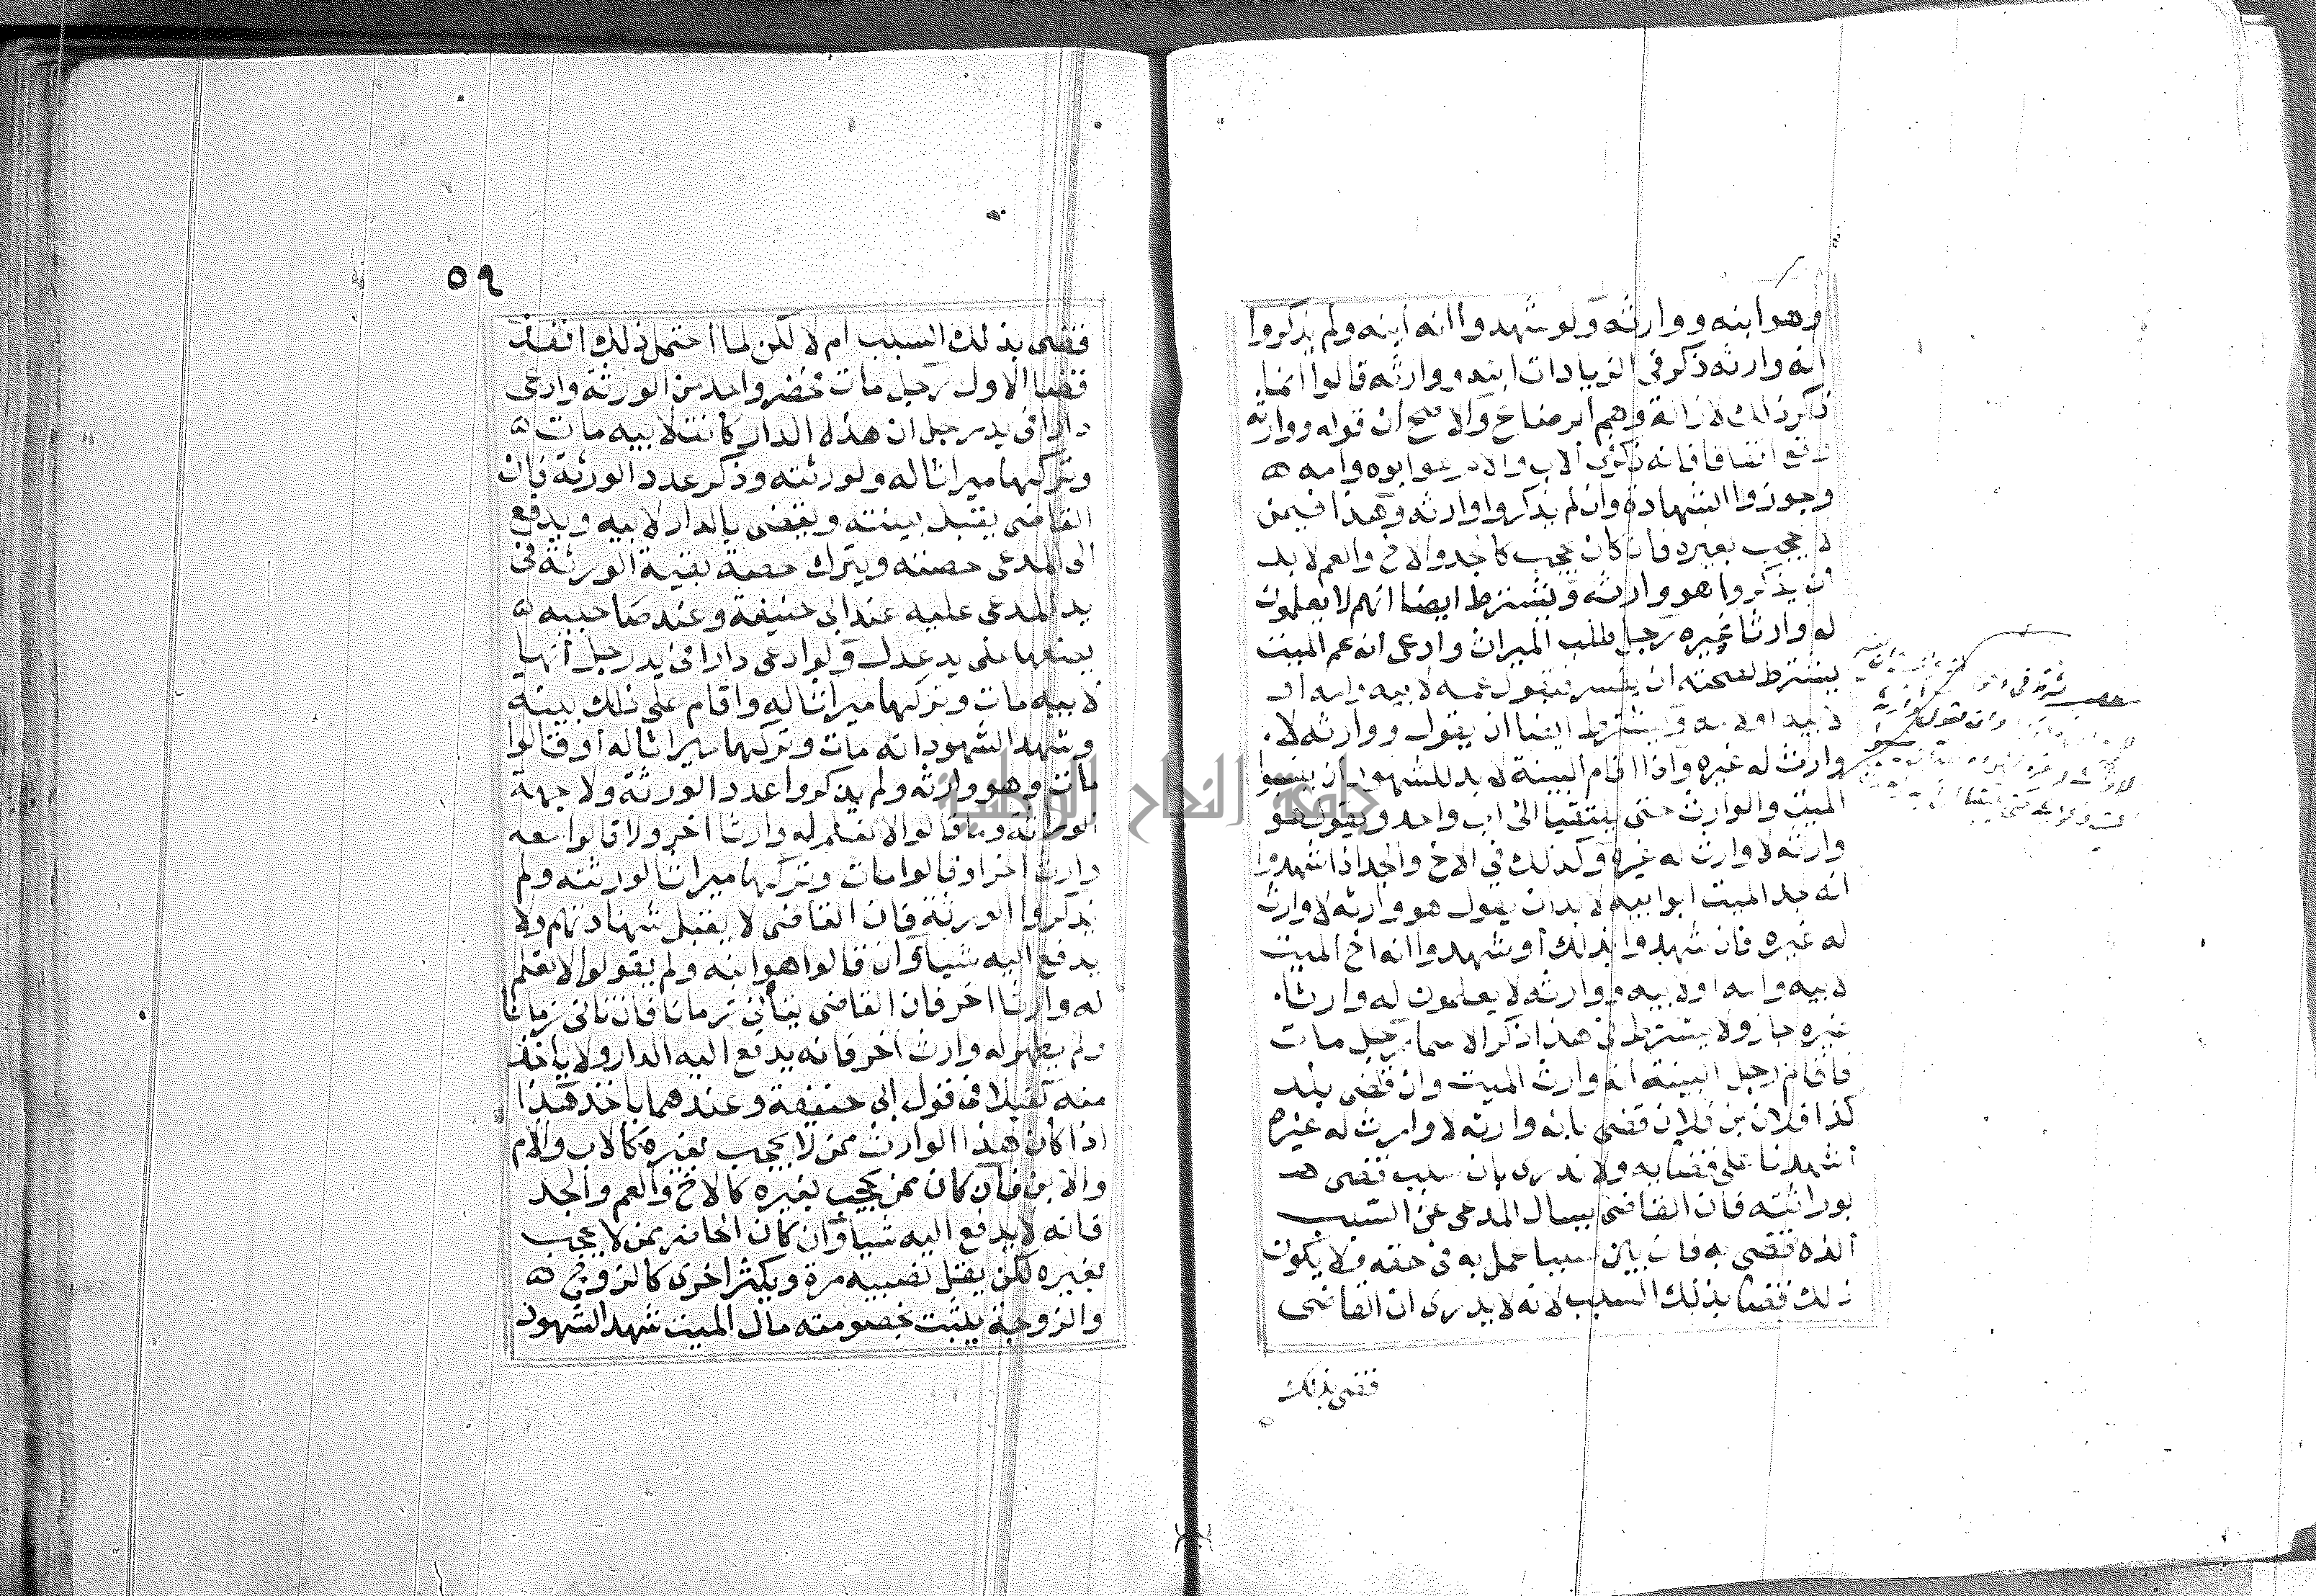 وهو ابنه ووارثه ولو شهدوا انه ابنه ولم يذكروا
انه وارثه ذكر في الزيادات ابنه ووارثه قالوا انما
ذكر ذلك لازالة وهم الرضاع والاصح ان قوله ووارثه
وقع اتفاقا فانه ذكر في الاب والام هو ابوه وامه
وجوزوا الشهادة وان لم يذكروا وارثه وهذا فيمن
لا يحجب بغيره فان كان يحجب كالجد والاخ والعم لا بد
ان يذكروا هو وارثه ويشترط ايضا انهم لا يعلمون
له وارثا غيره رجل طلب الميراث وادعى انه عم الميت
يشترط لصحته ان يفسر فيقول عمه لابيه وامه او
لابيه او لامه ويشترط ايضا ان يقول ووارثه لا
وارث له غيره واذا اقام البينة لا بد للشهود ان ينسبوا
الميت والوارث حتى يلتقيا الى اب واحد ويقول هو
وارثه لا وارث له غيره وكذلك في الاخ والجد اذا شهدوا
انه جد الميت ابو ابيه لا بد ان يقول هو وارثه لا وارث
له غيره فان شهدوا بذلك او شهدوا انه اخ الميت
لابيه وامه او لابيه ووارثه لا يعلمون له وارثا
غيره جاز ولا يشترط في هذا ذكر الاسماء رجل مات
فاقام رجل البينة انه وارث الميت وان قاضي بلد
كذا فلان بن فلان قضى بانه وارثه لا وارث له غيره
اشهدنا على قضائه ولا ندري باي سبب قضى
بوراثته فان القاضي يسال المدعي عن السبب
الذي قضى به فان بين سببا عمل به في حقه ولا يكون
ذلك قضاء بذلك السبب لانه لا يدري ان القاضي
فقضى بذلك
٥٩
فقضى بذلك السبب ام لا لكن لما احتمل ذلك انفذ
قضاء الاول رجل مات فحضر واحد من الورثة وادعى
دارا في يد رجل ان هذه الدار كانت لابيه مات
وتركها ميراثا له ولورثته وذكر عدد الورثة فان
القاضي يقبل بينته ويقضي بالدار لابيه ويدفع
الى المدعي حصته ويترك حصة بقية الورثة في
يد المدعى عليه عند ابي حنيفة وعند صاحبيه
يضعها على يد عدل ولو ادعى دارا في يد رجل انها
لابيه مات وتركها ميراثا له واقام على ذلك بينة
وشهد الشهود انه مات وتركها ميراثا له او قالوا
مات وهو وارثه ولم يذكروا عدد الورثة ولا جهة
الوراثة وما قالوا لا نعلم له وارثا اخر ولا قالوا معه
وارث اخر او قالوا مات وتركها ميراثا لورثته ولم
يذكروا الورثة فان القاضي لا يقبل شهادتهم ولا
يدفع اليه شيا وان قالوا هو ابنه ولم يقولوا لا نعلم
له وارثا اخر فان القاضي يتأنى زمانا فان تانى زمانا
ولم يظهر له وارث اخر فانه يدفع اليه الدار ولا ياخذ
منه كفيلا في قول ابي حنيفة وعندهما ياخذ هذا
اذا كان هذا الوارث ممن لا يحجب بغيره كالاب والام
والابن فان كان ممن يحجب بغيره كالاخ والعم والجد
فانه لا يدفع اليه شيا وان كان الحاضر ممن لا يحجب
بغيره لكن يقل نصيبه مرة ويكثر اخرى كالزوج
والزوجة يثبت بخصومته مال الميت شهد الشهود
جامعة النجاح الوطنية